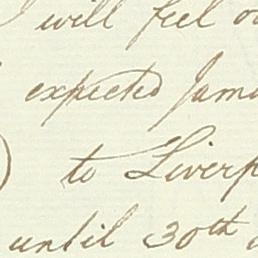 I will feel
expected Jam
to Liverp
until 30th